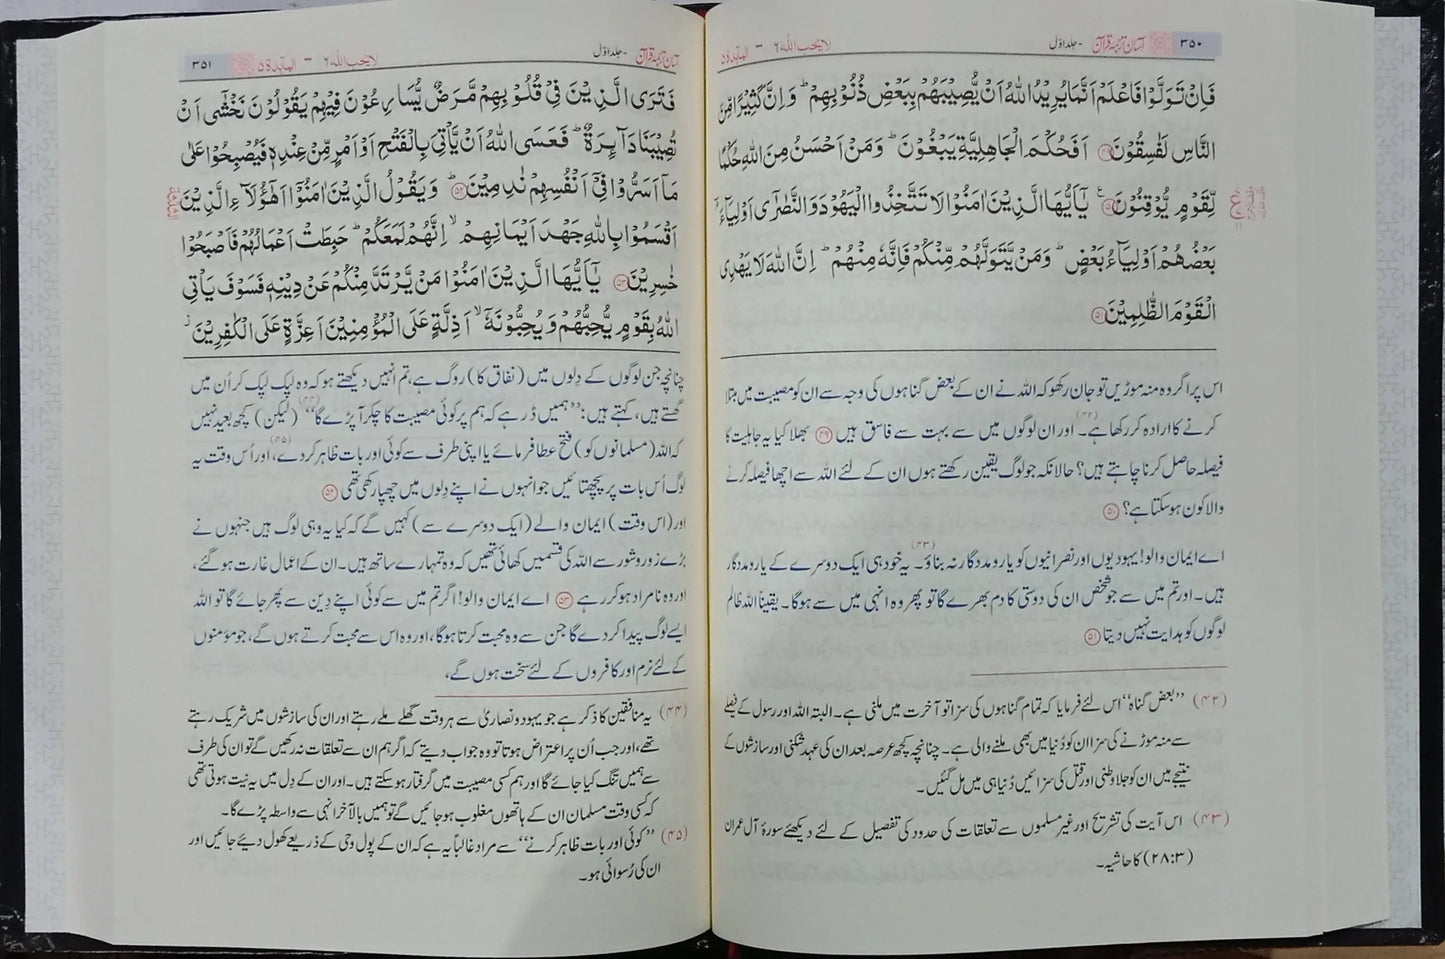 ۳۵۰ آسان ترجمۂ قرآن - جلد اوّل لا یحب اللہ ۶ - المآئدۃ ۵
فَاِنْ تَوَلَّوْا فَاعْلَمْ اَنَّمَا يُرِيْدُ اللّٰهُ اَنْ يُّصِيْبَهُمْ بِبَعْضِ ذُنُوْبِهِمْ ؕ وَاِنَّ كَثِيْرًا مِّنَ
النَّاسِ لَفٰسِقُوْنَ ﴿۴۹﴾ اَفَحُكْمَ الْجَاهِلِيَّةِ يَبْغُوْنَ ؕ وَمَنْ اَحْسَنُ مِنَ اللّٰهِ حُكْمًا
لِّقَوْمٍ يُّوْقِنُوْنَ ﴿۵۰﴾ يٰۤاَيُّهَا الَّذِيْنَ اٰمَنُوْا لَا تَتَّخِذُوا الْيَهُوْدَ وَالنَّصٰرٰۤى اَوْلِيَآءَ ۘ
بَعْضُهُمْ اَوْلِيَآءُ بَعْضٍ ؕ وَمَنْ يَّتَوَلَّهُمْ مِّنْكُمْ فَاِنَّهٗ مِنْهُمْ ؕ اِنَّ اللّٰهَ لَا يَهْدِى
الْقَوْمَ الظّٰلِمِيْنَ ﴿۵۱﴾
اس پر اگر وہ منہ موڑیں تو جان رکھو کہ اللہ نے ان کے بعض گناہوں کی وجہ سے ان کو مصیبت میں مبتلا
کرنے کا ارادہ کر رکھا ہے۔ (۴۲) اور ان لوگوں میں سے بہت سے فاسق ہیں ﴿۴۹﴾ بھلا کیا یہ جاہلیت کا
فیصلہ حاصل کرنا چاہتے ہیں؟ حالانکہ جو لوگ یقین رکھتے ہوں ان کے لئے اللہ سے اچھا فیصلہ کرنے
والا کون ہوسکتا ہے؟ ﴿۵۰﴾
اے ایمان والو! یہودیوں اور نصرانیوں کو یار و مددگار نہ بناؤ۔ (۴۳) یہ خود ہی ایک دوسرے کے یار و مددگار
ہیں۔ اور تم میں سے جو شخص ان کی دوستی کا دم بھرے گا تو پھر وہ انہی میں سے ہوگا۔ یقیناً اللہ ظالم
لوگوں کو ہدایت نہیں دیتا ﴿۵۱﴾
(۴۲) ”بعض گناہ“ اس لئے فرمایا کہ تمام گناہوں کی سزا تو آخرت میں ملنی ہے۔ البتہ اللہ اور رسول کے فیصلے
سے منہ موڑنے کی سزا ان کو دُنیا میں بھی ملنے والی ہے۔ چنانچہ کچھ عرصہ بعد ان کی عہد شکنی اور سازشوں کے
نتیجے میں ان کو جلاوطنی اور قتل کی سزائیں دُنیا ہی میں مل گئیں۔
(۴۳) اس آیت کی تشریح اور غیر مسلموں سے تعلقات کی حدود کی تفصیل کے لئے دیکھئے سورۂ آل عمران
(۳:۲۸) کا حاشیہ۔
آسان ترجمۂ قرآن - جلد اوّل لا یحب اللہ ۶ - المآئدۃ ۵ ۳۵۱
فَتَرَى الَّذِيْنَ فِىْ قُلُوْبِهِمْ مَّرَضٌ يُّسَارِعُوْنَ فِيْهِمْ يَقُوْلُوْنَ نَخْشٰۤى اَنْ
تُصِيْبَنَا دَآئِرَةٌ ؕ فَعَسَى اللّٰهُ اَنْ يَّاْتِىَ بِالْفَتْحِ اَوْ اَمْرٍ مِّنْ عِنْدِهٖ فَيُصْبِحُوْا عَلٰى
مَاۤ اَسَرُّوْا فِىْۤ اَنْفُسِهِمْ نٰدِمِيْنَ ﴿۵۲﴾ؕ وَيَقُوْلُ الَّذِيْنَ اٰمَنُوْۤا اَهٰٓؤُلَآءِ الَّذِيْنَ
اَقْسَمُوْا بِاللّٰهِ جَهْدَ اَيْمَانِهِمْ ۙ اِنَّهُمْ لَمَعَكُمْ ؕ حَبِطَتْ اَعْمَالُهُمْ فَاَصْبَحُوْا
خٰسِرِيْنَ ﴿۵۳﴾ يٰۤاَيُّهَا الَّذِيْنَ اٰمَنُوْا مَنْ يَّرْتَدَّ مِنْكُمْ عَنْ دِيْنِهٖ فَسَوْفَ يَاْتِى
اللّٰهُ بِقَوْمٍ يُّحِبُّهُمْ وَيُحِبُّوْنَهٗۤ ۙ اَذِلَّةٍ عَلَى الْمُؤْمِنِيْنَ اَعِزَّةٍ عَلَى الْكٰفِرِيْنَ ؗ
چنانچہ جن لوگوں کے دِلوں میں (نفاق کا) روگ ہے، تم انہیں دیکھتے ہو کہ وہ لپک لپک کر اُن میں
گھستے ہیں، کہتے ہیں: ”ہمیں ڈر ہے کہ ہم پر کوئی مصیبت کا چکر آپڑے گا“ (۴۴) (لیکن) کچھ بعید نہیں
کہ اللہ (مسلمانوں کو) فتح عطا فرمائے یا اپنی طرف سے کوئی اور بات ظاہر کردے، (۴۵) اور اُس وقت یہ
لوگ اُس بات پر پچھتائیں جو انہوں نے اپنے دِلوں میں چھپا رکھی تھی ﴿۵۲﴾
اور (اس وقت) ایمان والے (ایک دوسرے سے) کہیں گے کہ کیا یہ وہی لوگ ہیں جنہوں نے
بڑے زور و شور سے اللہ کی قسمیں کھائی تھیں کہ وہ تمہارے ساتھ ہیں۔ ان کے اعمال غارت ہوگئے،
اور وہ نامراد ہوکر رہے ﴿۵۳﴾ اے ایمان والو! اگر تم میں سے کوئی اپنے دِین سے پھر جائے گا تو اللہ
ایسے لوگ پیدا کردے گا جن سے وہ محبت کرتا ہوگا، اور وہ اس سے محبت کرتے ہوں گے، جو مؤمنوں
کے لئے نرم اور کافروں کے لئے سخت ہوں گے،
(۴۴) یہ منافقین کا ذکر ہے جو یہود و نصاریٰ سے ہر وقت گھلے ملے رہتے اور ان کی سازشوں میں شریک رہتے
تھے، اور جب اُن پر اعتراض ہوتا تو وہ جواب دیتے کہ اگر ہم ان سے تعلقات نہ رکھیں گے تو ان کی طرف
سے ہمیں تنگ کیا جائے گا اور ہم کسی مصیبت میں گرفتار ہوسکتے ہیں۔ اور ان کے دِل میں یہ نیت ہوتی تھی
کہ کسی وقت مسلمان ان کے ہاتھوں مغلوب ہوجائیں گے تو ہمیں بالآخر انہی سے واسطہ پڑے گا۔
(۴۵) ”کوئی اور بات ظاہر کرنے“ سے مراد غالباً یہ ہے کہ ان کے پول وحی کے ذریعے کھول دیئے جائیں اور
ان کی رُسوائی ہو۔